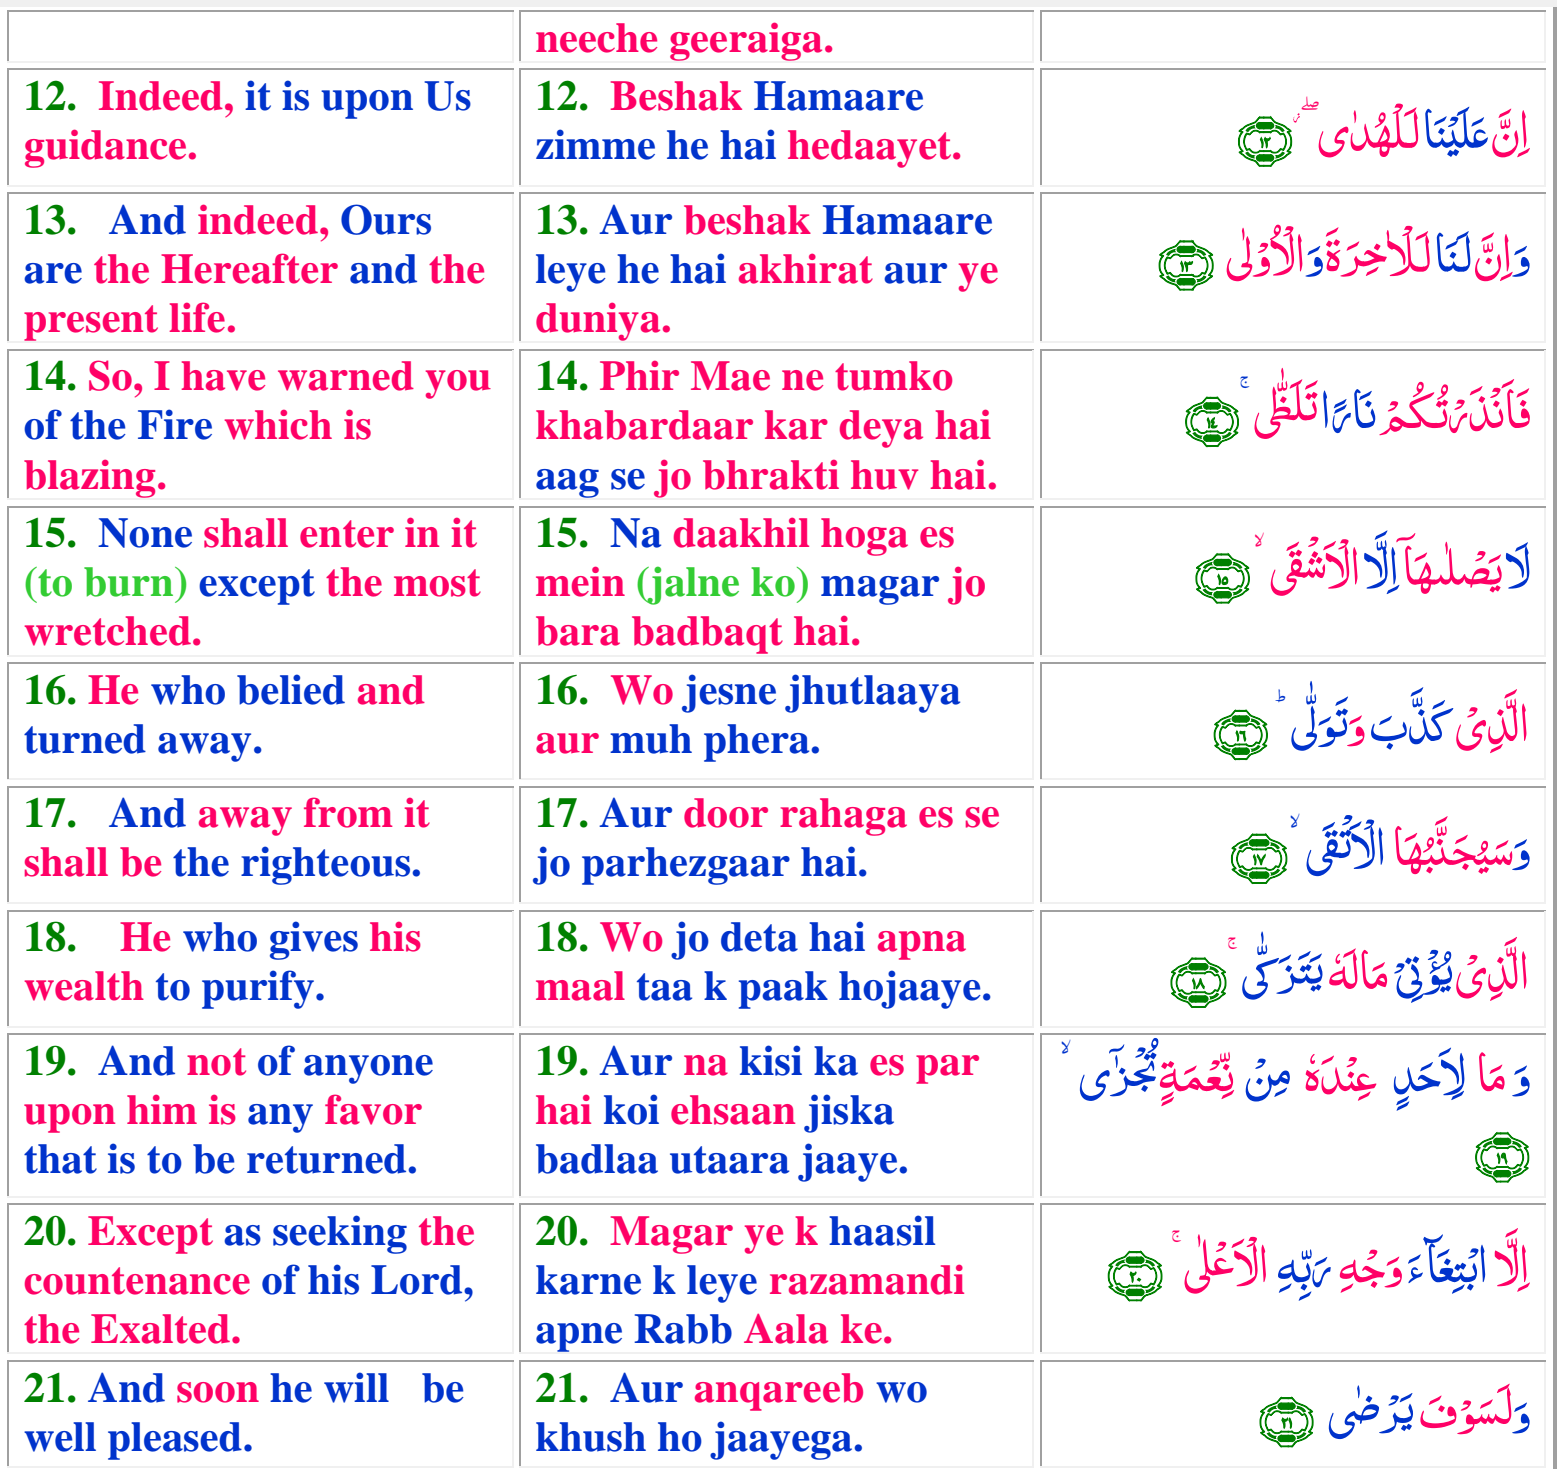 neeche geeraiga.
12. Indeed, it is upon Us
guidance.
12. Beshak Hamaare
zimme he hai hedaayet.
اِنَّ عَلَيْنَا لَلْهُدٰى ۖ ۗ ١٢
13. And indeed, Ours
are the Hereafter and the
present life.
13. Aur beshak Hamaare
leye he hai akhirat aur ye
duniya.
وَاِنَّ لَنَا لَلْاٰخِرَةَ وَالْاُوْلٰى ١٣
14. So, I have warned you
of the Fire which is
blazing.
14. Phir Mae ne tumko
khabardaar kar deya hai
aag se jo bhrakti huv hai.
فَاَنْذَرْتُكُمْ نَارًا تَلَظّٰى ۚ ١٤
15. None shall enter in it
(to burn) except the most
wretched.
15. Na daakhil hoga es
mein (jalne ko) magar jo
bara badbaqt hai.
لَا يَصْلٰىهَاۤ اِلَّا الْاَشْقَى ۙ ١٥
16. He who belied and
turned away.
16. Wo jesne jhutlaaya
aur muh phera.
الَّذِىْ كَذَّبَ وَتَوَلّٰى ؕ ١٦
17. And away from it
shall be the righteous.
17. Aur door rahaga es se
jo parhezgaar hai.
وَسَيُجَنَّبُهَا الْاَتْقَى ۙ ١٧
18. He who gives his
wealth to purify.
18. Wo jo deta hai apna
maal taa k paak hojaaye.
الَّذِىْ يُؤْتِىْ مَالَهٗ يَتَزَكّٰى ۚ ١٨
19. And not of anyone
upon him is any favor
that is to be returned.
19. Aur na kisi ka es par
hai koi ehsaan jiska
badlaa utaara jaaye.
وَ مَا لِاَحَدٍ عِنْدَهٗ مِنْ نِّعْمَةٍ تُجْزٰٓى ۙ
١٩
20. Except as seeking the
countenance of his Lord,
the Exalted.
20. Magar ye k haasil
karne k leye razamandi
apne Rabb Aala ke.
اِلَّا ابْتِغَآءَ وَجْهِ رَبِّهِ الْاَعْلٰى ۚ ٢٠
21. And soon he will be
well pleased.
21. Aur anqareeb wo
khush ho jaayega.
وَلَسَوْفَ يَرْضٰى ٢١